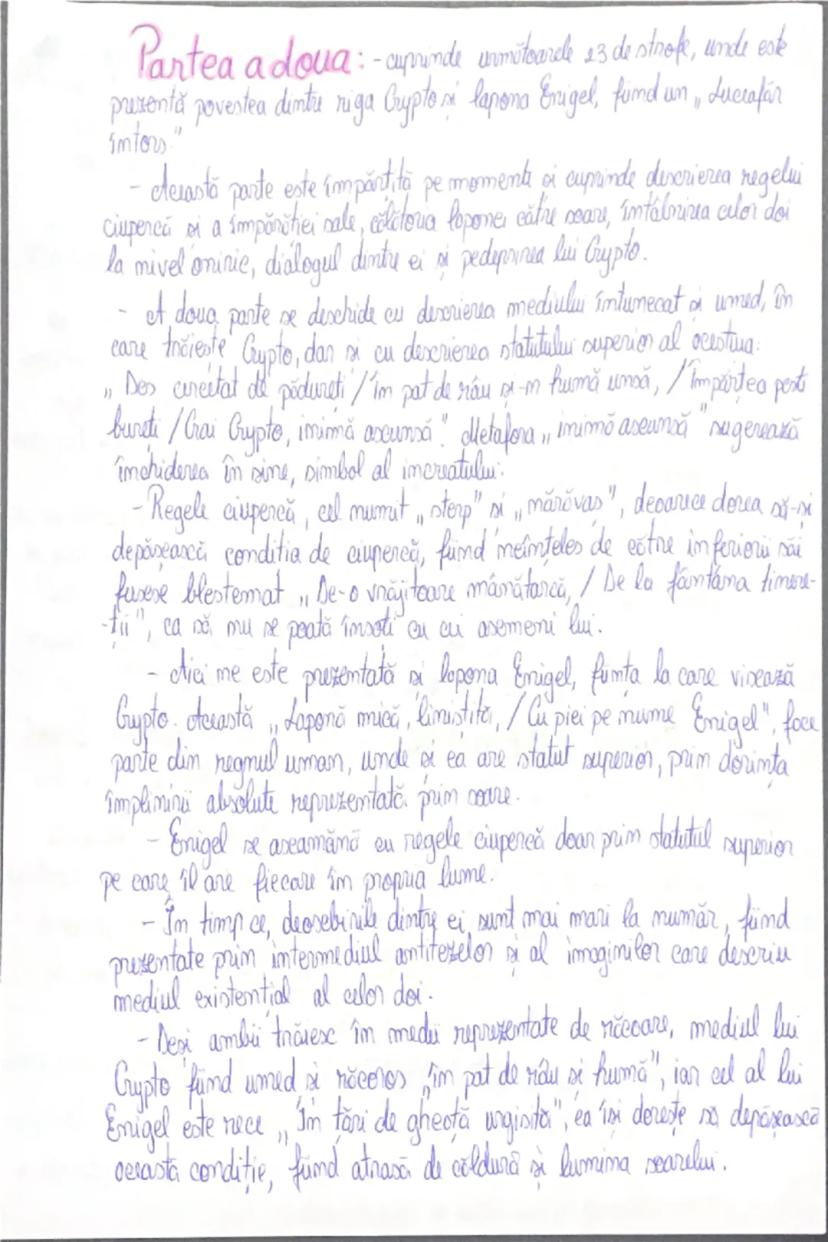 Partea a doua: - cuprinde următoarele 23 de strofe, unde este
prezentă povestea dintre riga Crypto și lapona Enigel, fiind un „Luceafăr
întors"
- Această parte este împărțită pe momente și cuprinde descrierea regelui
ciupercă și a împărăției sale, călătoria laponei către soare, întâlnirea celor doi
la nivel oniric, dialogul dintre ei și pedepsirea lui Crypto.
- A doua parte se deschide cu descrierea mediului întunecat și umed, în
care trăiește Crypto, dar și cu descrierea statutului superior al acestuia:
„Des cercetat de pădureți / În pat de râu și-n humă unsă, / Împărțea peste
bureți / Crai Crypto, inimă ascunsă". Metafora „inimă ascunsă" sugerează
închiderea în sine, simbol al increatului.
- Regele ciupercă, cel numit „sterp" și „nărăvaș", deoarece dorea să-și
depășească condiția de ciupercă, fiind neînțeles de către inferiorii săi
fusese blestemat „De-o vrăjitoare mânătarcă, / De la fântâna tinere-
-ții", ca să nu se poată însoți cu cei asemeni lui.
- Aici ne este prezentată și lapona Enigel, ființa la care visează
Crypto. Această „Laponă mică, liniștită, / Cu piei pe nume Enigel", face
parte din regnul uman, unde și ea are statut superior, prin dorința
împlinirii absolute reprezentată prin soare.
- Enigel se aseamănă cu regele ciupercă doar prin statutul superior
pe care îl are fiecare în propria lume.
- În timp ce, deosebirile dintre ei sunt mai mari la număr, fiind
prezentate prin intermediul antitezelor și al imaginilor care descriu
mediul existențial al celor doi.
- Deși ambii trăiesc în medii reprezentate de răcoare, mediul lui
Crypto fiind umed și răcoros „în pat de râu și humă", iar cel al lui
Enigel este rece „În țări de gheață urgisită", ea își dorește să depășească
această condiție, fiind atrasă de căldură și lumina soarelui.